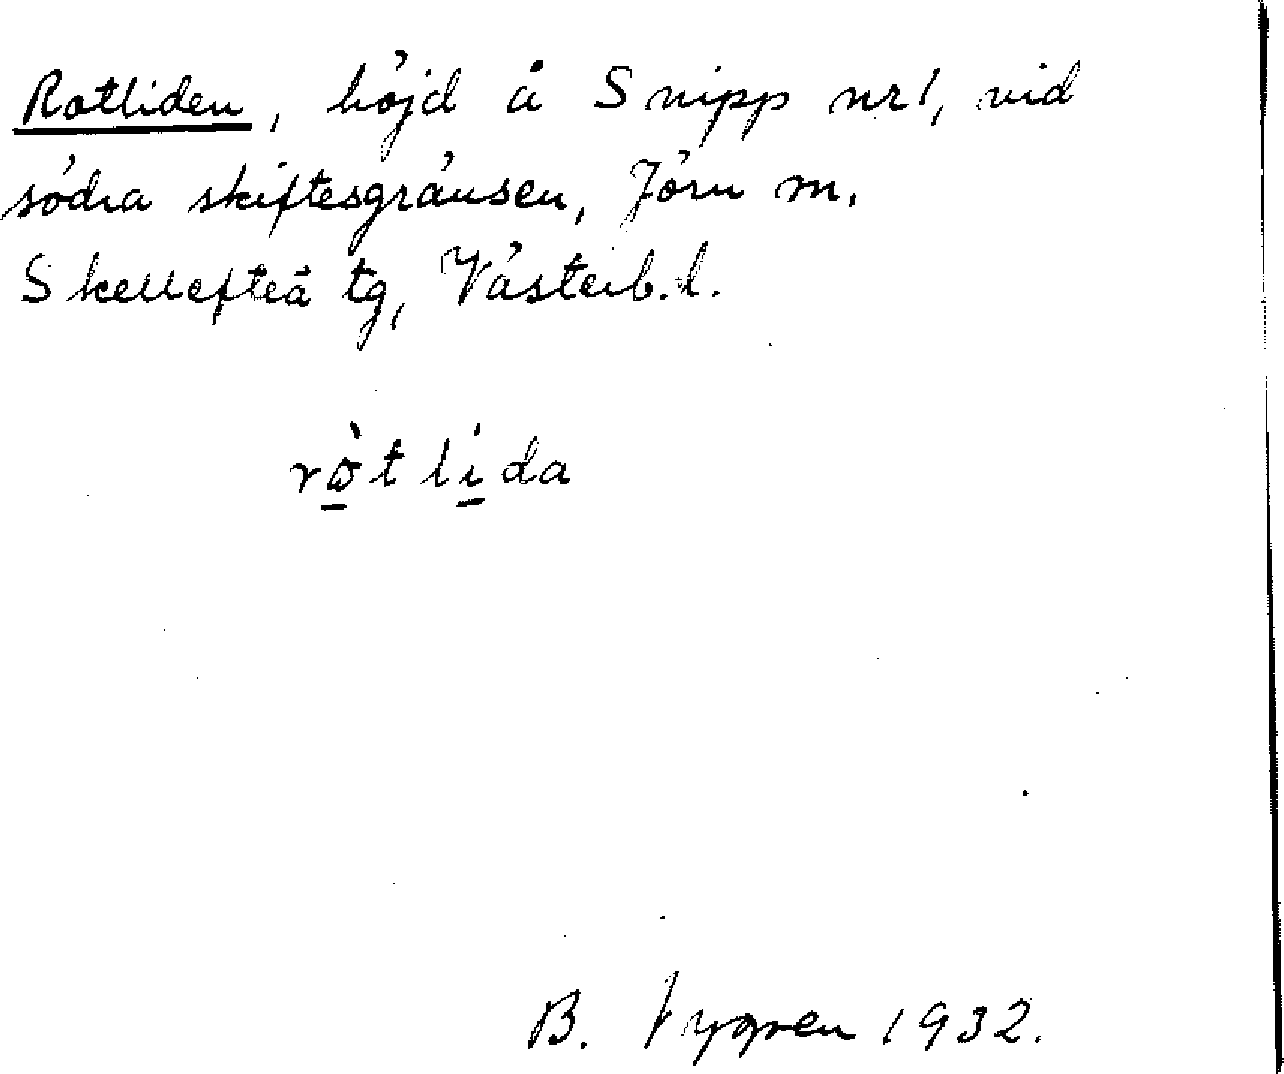 Rotliden, höjd å Snipp nr 1, vid
södra skiftesgränsen, Jörn m.
Skellefteå tg, Västerb. l.
ròtlída
B. Nygren 1932.